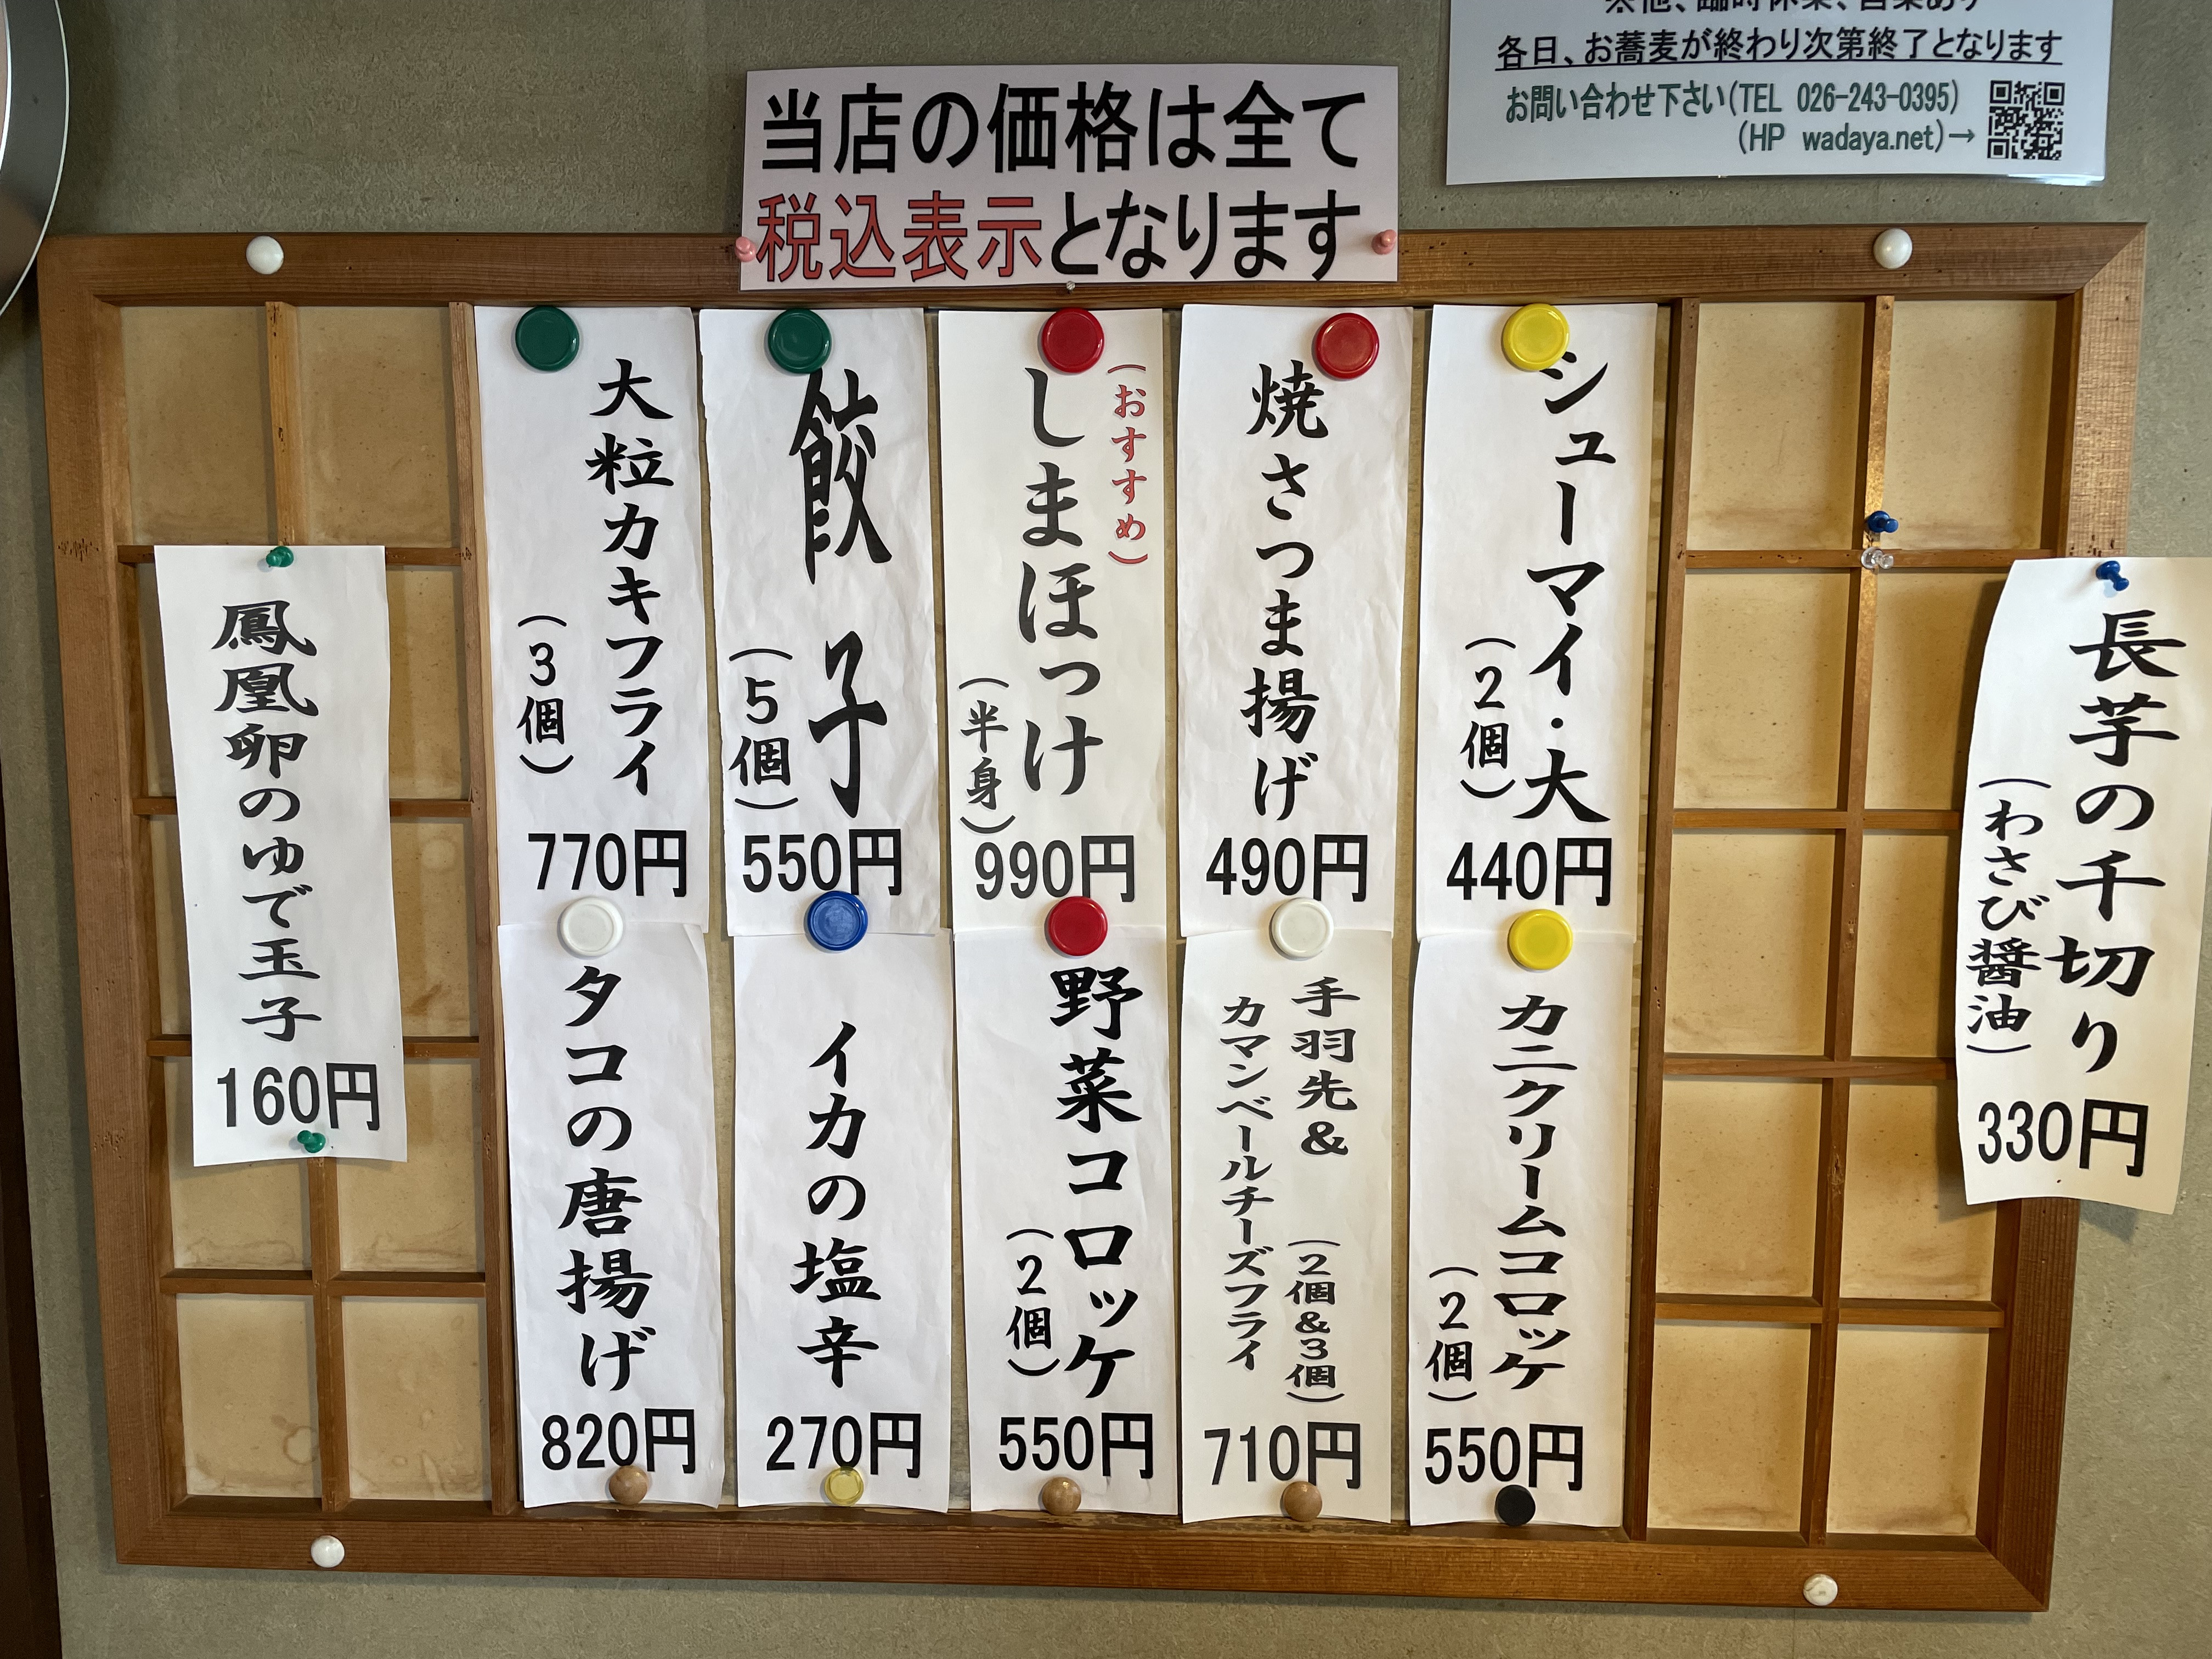 ※他、臨時休業、営業あり
各日、お蕎麦が終わり次第終了となります
お問い合わせ下さい(TEL 026-243-0395)
(HP wadaya.net)→
当店の価格は全て
税込表示となります
長芋の千切り
(わさび醤油)
330円
シューマイ・大
(2個)
440円
焼さつま揚げ
490円
(おすすめ)
しまほっけ
(半身)
990円
餃子
(5個)
550円
大粒カキフライ
(3個)
770円
カニクリームコロッケ
(2個)
550円
手羽先&
カマンベールチーズフライ
(2個&3個)
710円
野菜コロッケ
(2個)
550円
イカの塩辛
270円
タコの唐揚げ
820円
鳳凰卵のゆで玉子
160円